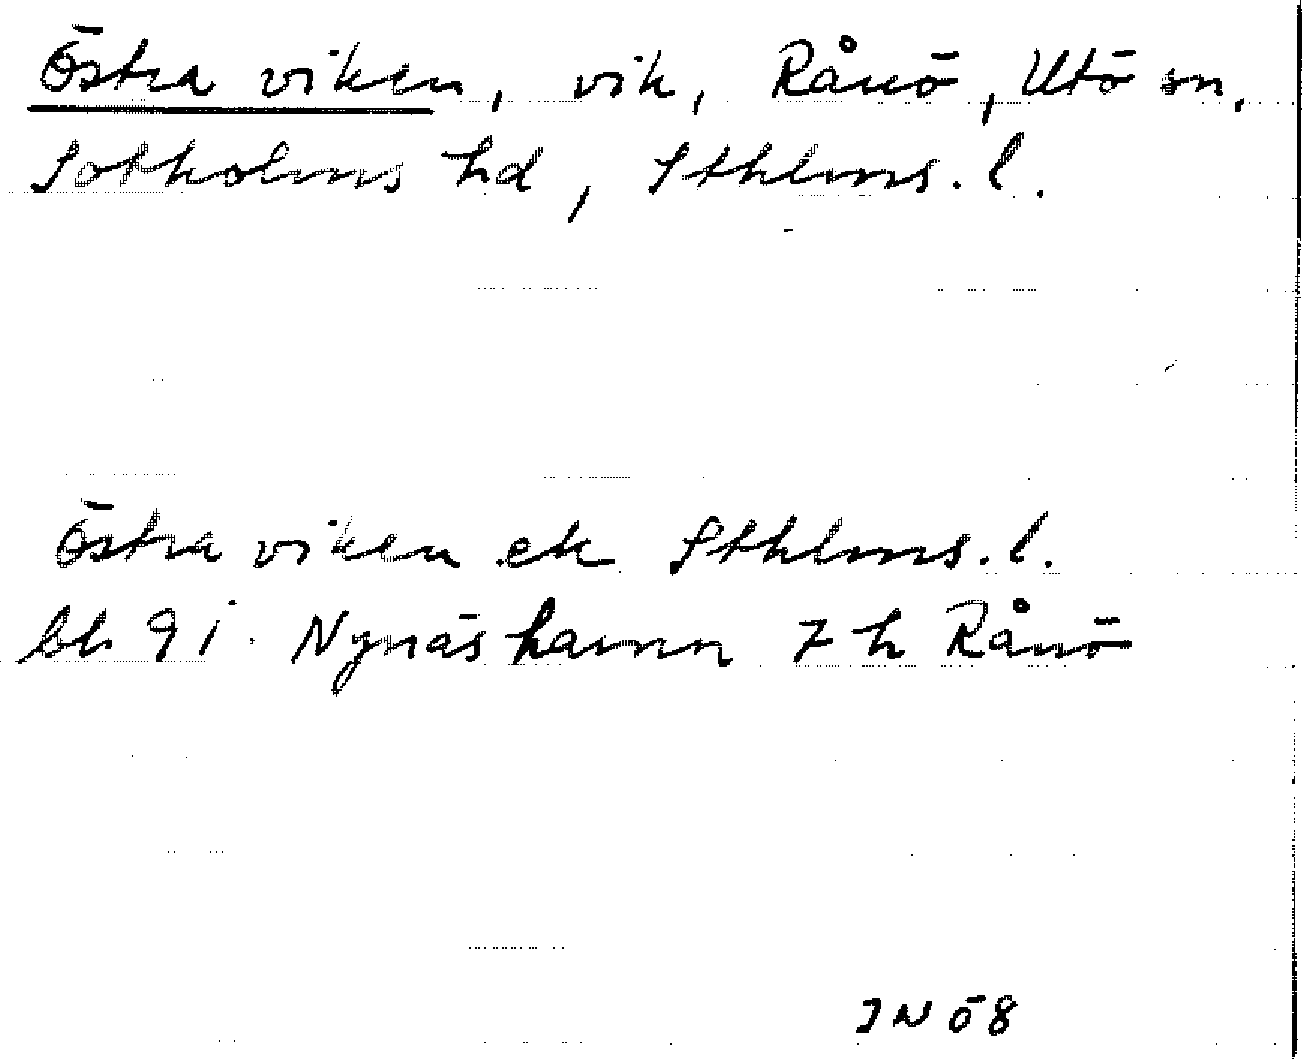 Östra viken, vik, Rånö, Utö sn,
Sotholms hd, Sthlms. l.
Östra viken ek Sthlms. l.
bl 9 i. Nynäshamn 7 h Rånö
INÖ8